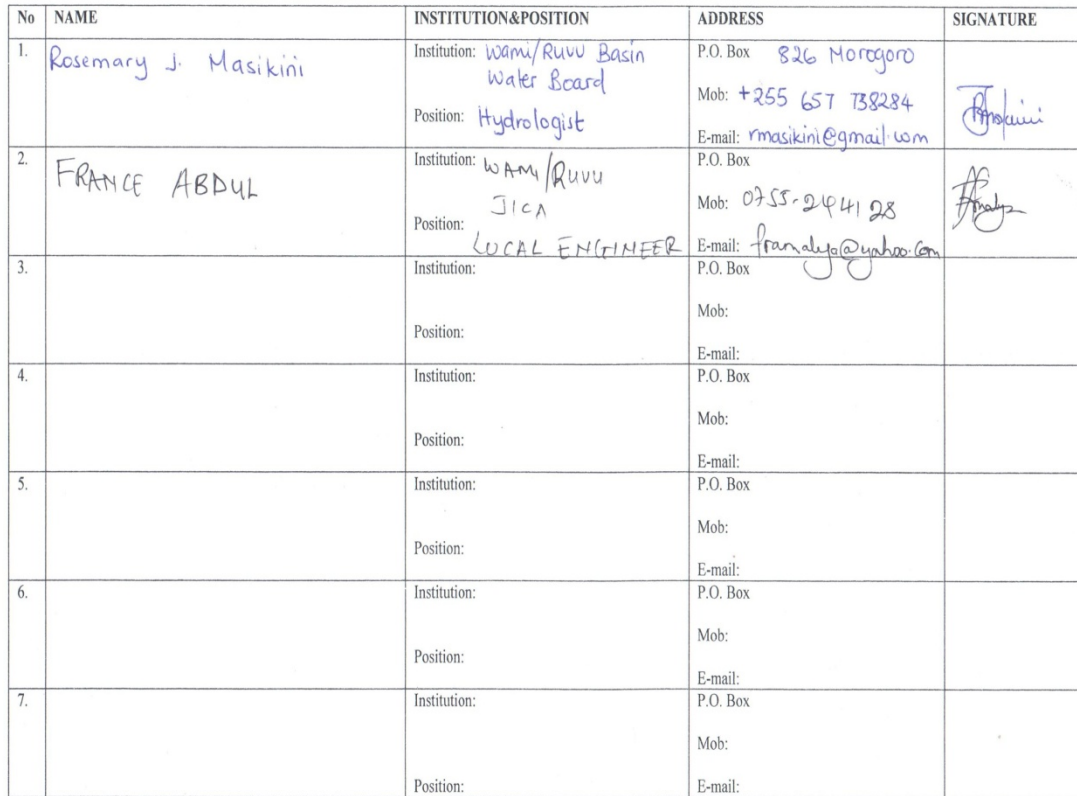 No NAME INSTITUTION&POSITION ADDRESS SIGNATURE
1. Rosemary J. Masikini
Institution: Wami/Ruvu Basin
Water Board
Position: Hydrologist
P.O. Box 826 Morogoro
Mob: +255 657 738284
E-mail: rmasikini@gmail.com
2. FRANCE ABDUL
Institution: WAMI/RUVU
JICA
Position:
LOCAL ENGINEER
P.O. Box
Mob: 0755-244128
E-mail: framalya@yahoo.com
3.
Institution:
Position:
P.O. Box
Mob:
E-mail:
4.
Institution:
Position:
P.O. Box
Mob:
E-mail:
5.
Institution:
Position:
P.O. Box
Mob:
E-mail:
6.
Institution:
Position:
P.O. Box
Mob:
E-mail:
7.
Institution:
Position:
P.O. Box
Mob:
E-mail: